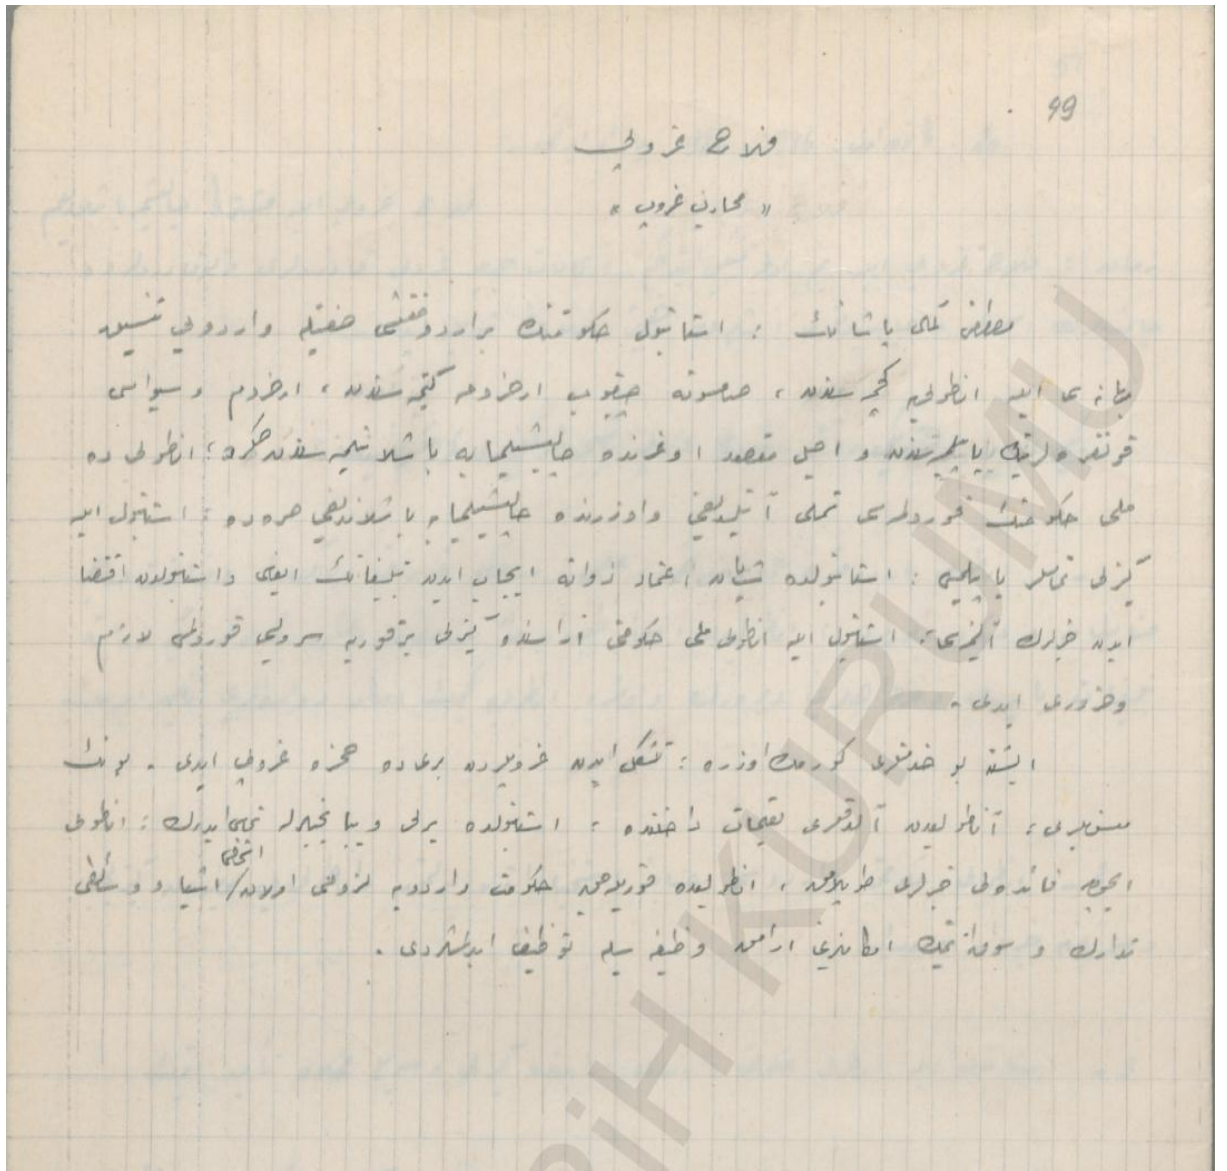 99
فلاح غروپى
« محارب غروپ »
مصطفى كمال پاشانك ؛ استانبول حكومتنك بر اردو مفتشى صفتيله واردويى تنسيق
بهانه سى ايله انطولى يه كچمه سندن ، صامسونه چيقوب ارضرومه كيتمه سندن ، ارضروم و سيواس
قونغره لرينك ياپيلمه سندن و اصل مقصد اوغرنده چاليشيلمايه باشلانيلمه سندن صكره ؛ انطولى ده
ملى حكومتك قورولمسى تملى آتيلديغى واوزرنده چاليشيلمايه باشلانديغى صره ده ؛ استانبول ايله
كيزلى تماسلر ياپيلمسى ؛ استانبولده شايان اعتماد ذواته ايجاب ايدن تبليغاتك ايفاسى و استانبولدن اقتضا
ايدن خبرلرك آلينمسى ؛ استانبول ايله انطولى ملى حكومتى آراسنده كيزلى بر قوريه سرويسى قورولمسى لازم
وضرورى ايدى .
ايشته بو خدمتلرى كورمك اوزره ؛ تشكل ايدن غروپلردن برى ده حمزه غروپى ايدى . بونك
منسوبلرى ؛ آناطوليدن آلدقلرى تعليمات داخلنده ؛ استانبولده يرلى و يبانجيلرله تماس ايدرك ؛ انطولى
ايچون فائده لى خبرلرى طوپلامق ، انطوليده قوريلان حكومت واردويه لزومى اولان / اشخاص اشيا و وسائطى
تدارك و سوق ايتمك امكانلرينى ارامق وظيفه سيله توظيف ايدلمشلردى .
TARİH KURUMU